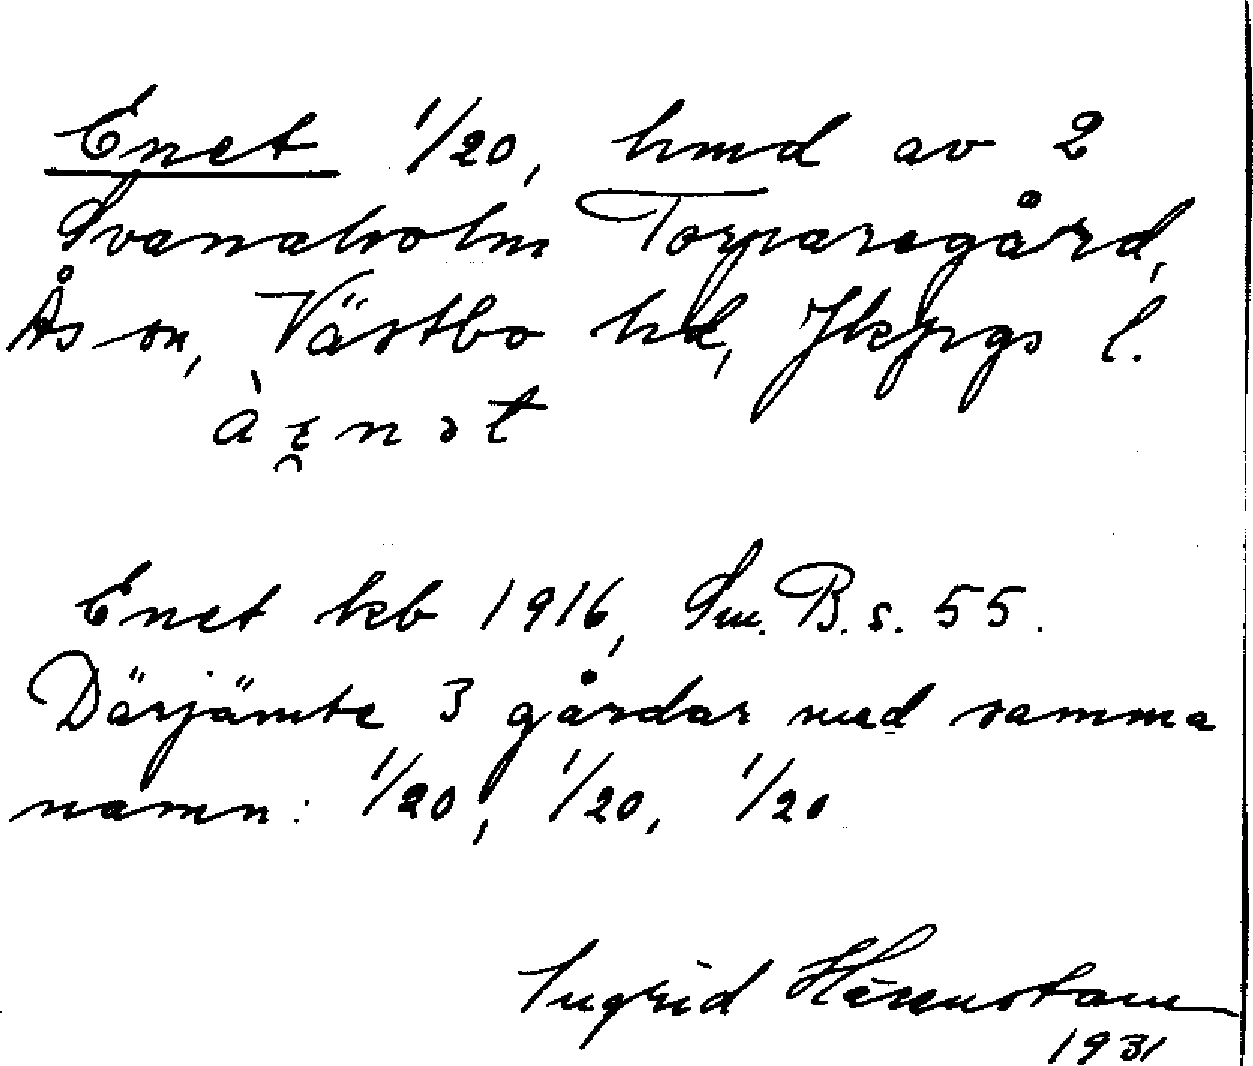 Enet 1/20, hmd av 2
Svanaholm Torparegård,
Ås sn, Västbo hd, Jkpgs l.
Enet kb 1916, Sm. B. s. 55.
Därjämte 3 gårdar med samma
namn: 1/20, 1/20, 1/20
Ingrid Härenstam
1931